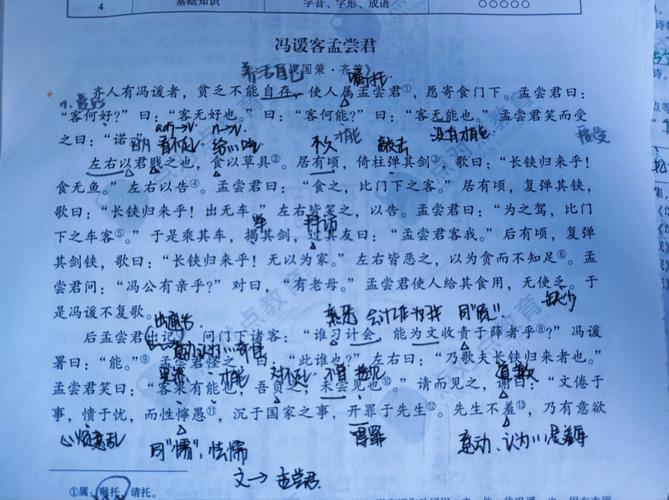 4 基础知识 字音、字形、成语 ○○○○○
冯谖客孟尝君
养活自己 国策·齐策》 嘱托
齐人有冯谖者，贫乏不能自存，使人属孟尝君①，愿寄食门下。孟尝君曰：
“客何好？”曰：“客无好也。”曰：“客何能？”曰：“客无能也。”孟尝君笑而受
之曰：“诺。” 看不起 不久 才能 敲击 没有才能 接受
左右以君贱之也，食以草具②。居有顷，倚柱弹其剑③，歌曰：“长铗归来乎！
食无鱼。”左右以告④。孟尝君曰：“食之，比门下之客。”居有顷，复弹其铗，
歌曰：“长铗归来乎！出无车。”左右皆笑之，以告。孟尝君曰：“为之驾，比门
下之车客⑤。”于是乘其车，揭其剑，过其友曰：“孟尝君客我。”后有顷，复弹
其剑铗，歌曰：“长铗归来乎！无以为家。”左右皆恶之，以为贪而不知足⑥。孟
尝君问：“冯公有亲乎？”对曰，“有老母。”孟尝君使人给其食用，无使乏。于
是冯谖不复歌。 缺少
后孟尝君出记⑦，问门下诸客：“谁习计会，能为文收责于薛者乎⑧？”冯谖
署曰：“能。”⑨孟尝君怪之，曰：“此谁也？”左右曰：“乃歌夫长铗归来者也。”
孟尝君笑曰：“客果有能也，吾负之，未尝见也⑩。”请而见之，谢曰：“文倦于
事，愦于忧，而性懧愚⑪，沉于国家之事，开罪于先生⑫。先生不羞⑬，乃有意欲
心烦意乱 同“懦”，怯懦 得罪 意动、认为
文→孟尝君
①属：嘱托，请托。